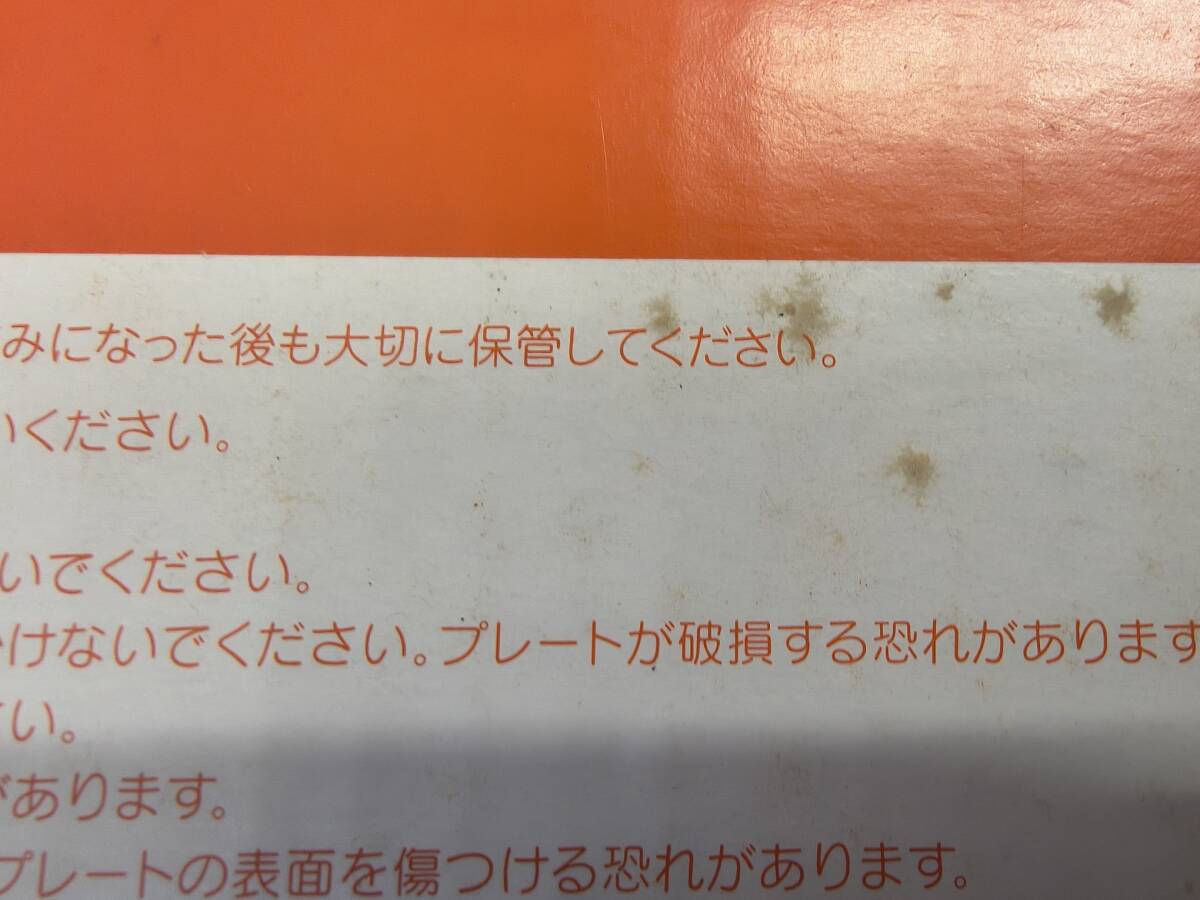 みになった後も大切に保管してください。
いください。
いでください。
かけないでください。プレートが破損する恐れがあります
さい。
があります。
プレートの表面を傷つける恐れがあります。